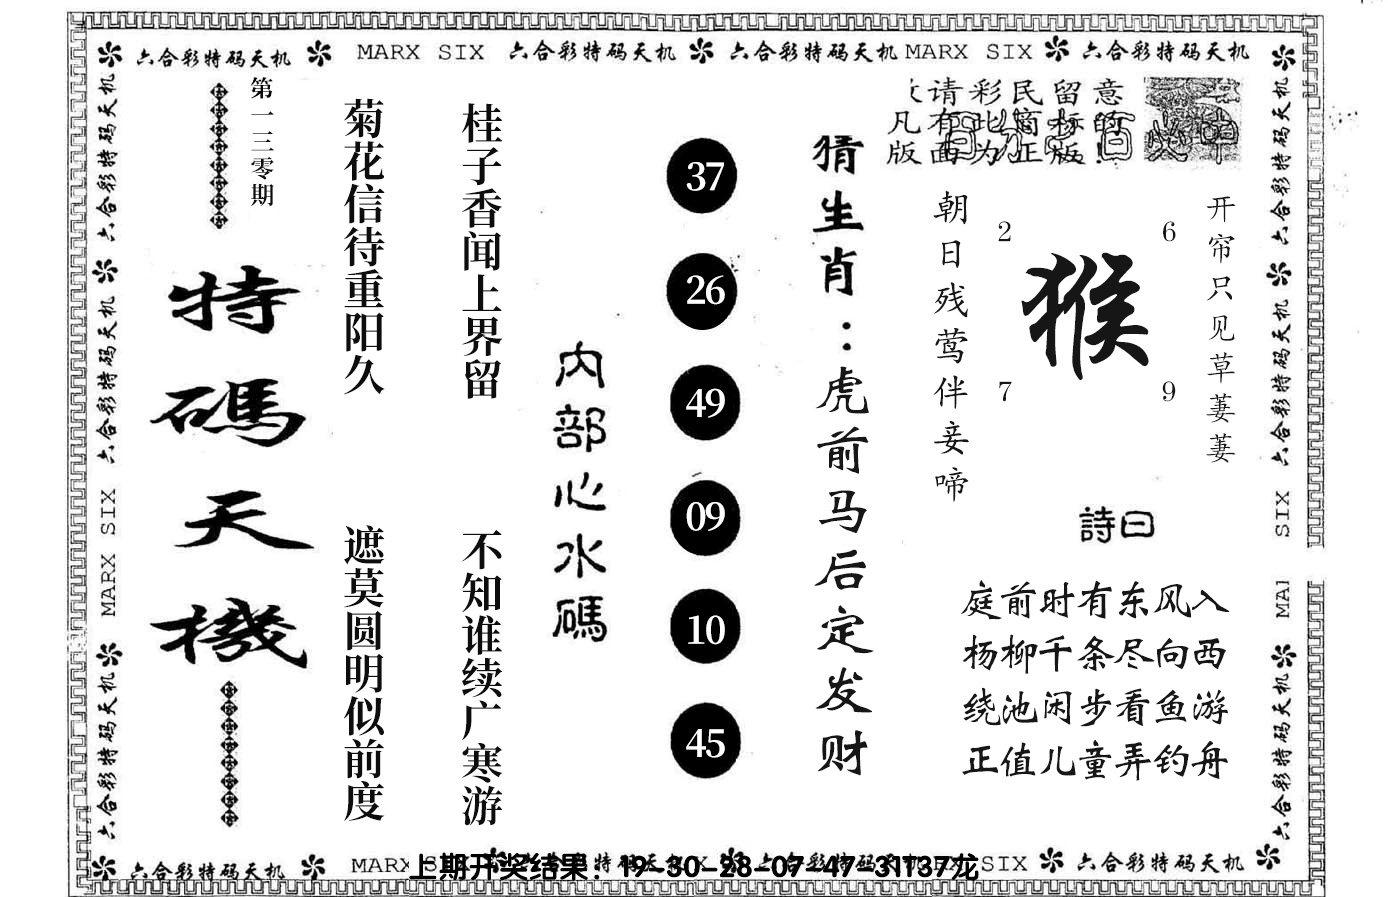 六合彩特码天机 MARX SIX 六合彩特码天机 六合彩特码天机 MARX SIX 六合彩特码天机
六合彩特码天机
六合彩特码天机
MARX SIX
六合彩特码天机
第一三零期
特碼天機
菊花信待重阳久
遮莫圆明似前度
桂子香闻上界留
不知谁续广寒游
内部心水碼
37
26
49
09
10
45
猜生肖：虎前马后定发财
请彩民留意
凡有此商标的
版面为正版!
朝日残莺伴妾啼
2
6
猴
7
9
开帘只见草萋萋
詩曰
庭前时有东风入
杨柳千条尽向西
绕池闲步看鱼游
正值儿童弄钓舟
六合彩特码天机
六合彩特码天机
SIX
MAI
六合彩特码天机
六合彩特码天机 MARX
SIX 六合彩特码天机
上期开奖结果：19-30-28-07-47-31T37龙